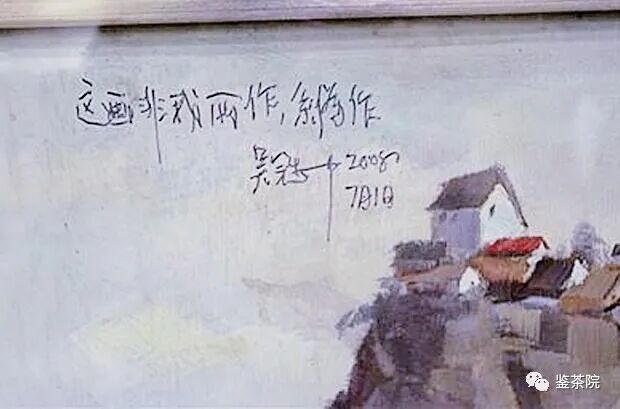 这画非我所作，系伪作
吴冠中 2008
7月1日
鉴茶院